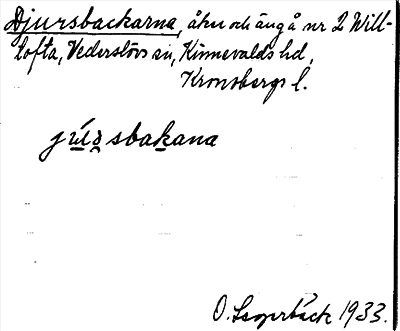 Djursbackarna, åker och äng å nr 2 Will-
tofta, Vederslövs sn, Kinnevalds hd,
Kronobergs l.
sbakana
O. 1933.